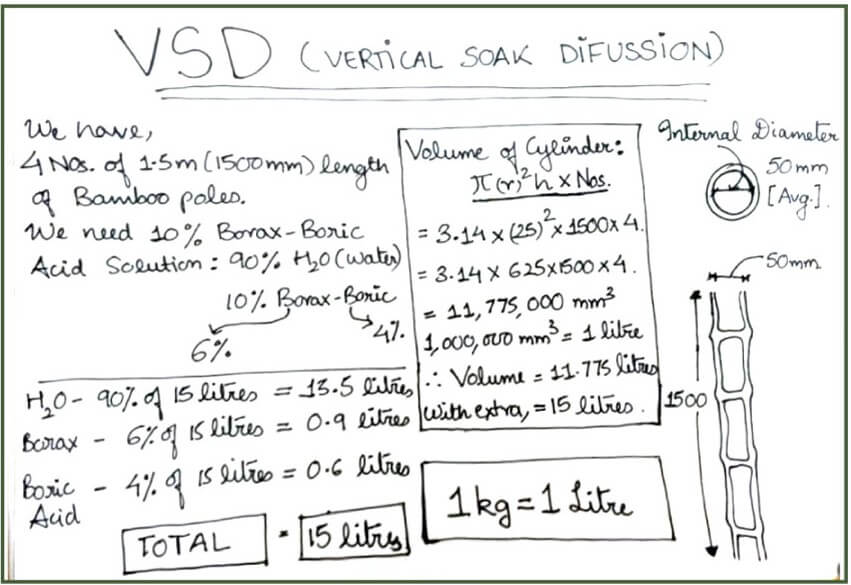 VSD (VERTICAL SOAK DIFUSSION)
We have,
4 Nos. of 1.5m (1500mm) length
of Bamboo poles.
We need 10% Borax-Boric
Acid Solution: 90% H2O (water)
10% Borax-Boric
6%
4%.
H2O - 90% of 15 litres = 13.5 litres
Borax - 6% of 15 litres = 0.9 litres
Boric - 4% of 15 litres = 0.6 litres
Acid
TOTAL = 15 litres
Volume of Cylinder:
π(r)²h × Nos.
= 3.14 × (25)² × 1500 × 4.
= 3.14 × 625 × 1500 × 4.
= 11,775,000 mm³
1,000,000 mm³ = 1 litre
∴ Volume = 11.775 litres
With extra, = 15 litres.
1 kg = 1 Litre
Internal Diameter
50mm
[Avg.].
50mm
1500